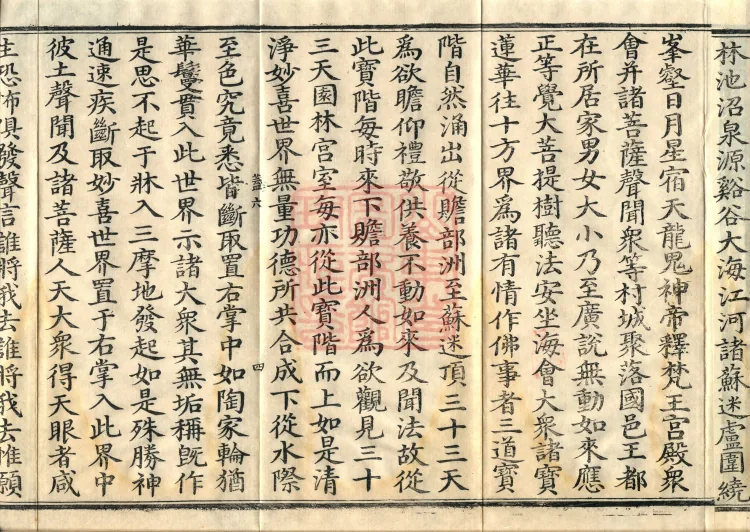 林池沼泉源谿谷大海江河諸蘇迷盧圍繞
峯壑日月星宿天龍鬼神帝釋梵王宮殿衆
會并諸菩薩聲聞衆等村城聚落國邑王都
在所居家男女大小乃至廣說無動如來應
正等覺大菩提樹聽法安坐海會大衆諸寶
蓮華往十方界爲諸有情作佛事者三道寶
階自然涌出從贍部洲至蘇迷頂三十三天
爲欲瞻仰禮敬供養不動如來及聞法故從
此寶階每時來下贍部洲人爲欲觀見三十
三天園林宮室每亦從此寶階而上如是清
淨妙喜世界無量功德所共合成下從水際
蓋六 四
至色究竟悉皆斷取置右掌中如陶家輪猶
華鬘貫入此世界示諸大衆其無垢稱旣作
是思不起于牀入三摩地發起如是殊勝神
通速疾斷取妙喜世界置于右掌入此界中
彼土聲聞及諸菩薩人天大衆得天眼者咸
生恐怖俱發聲言誰將我去誰將我去惟願